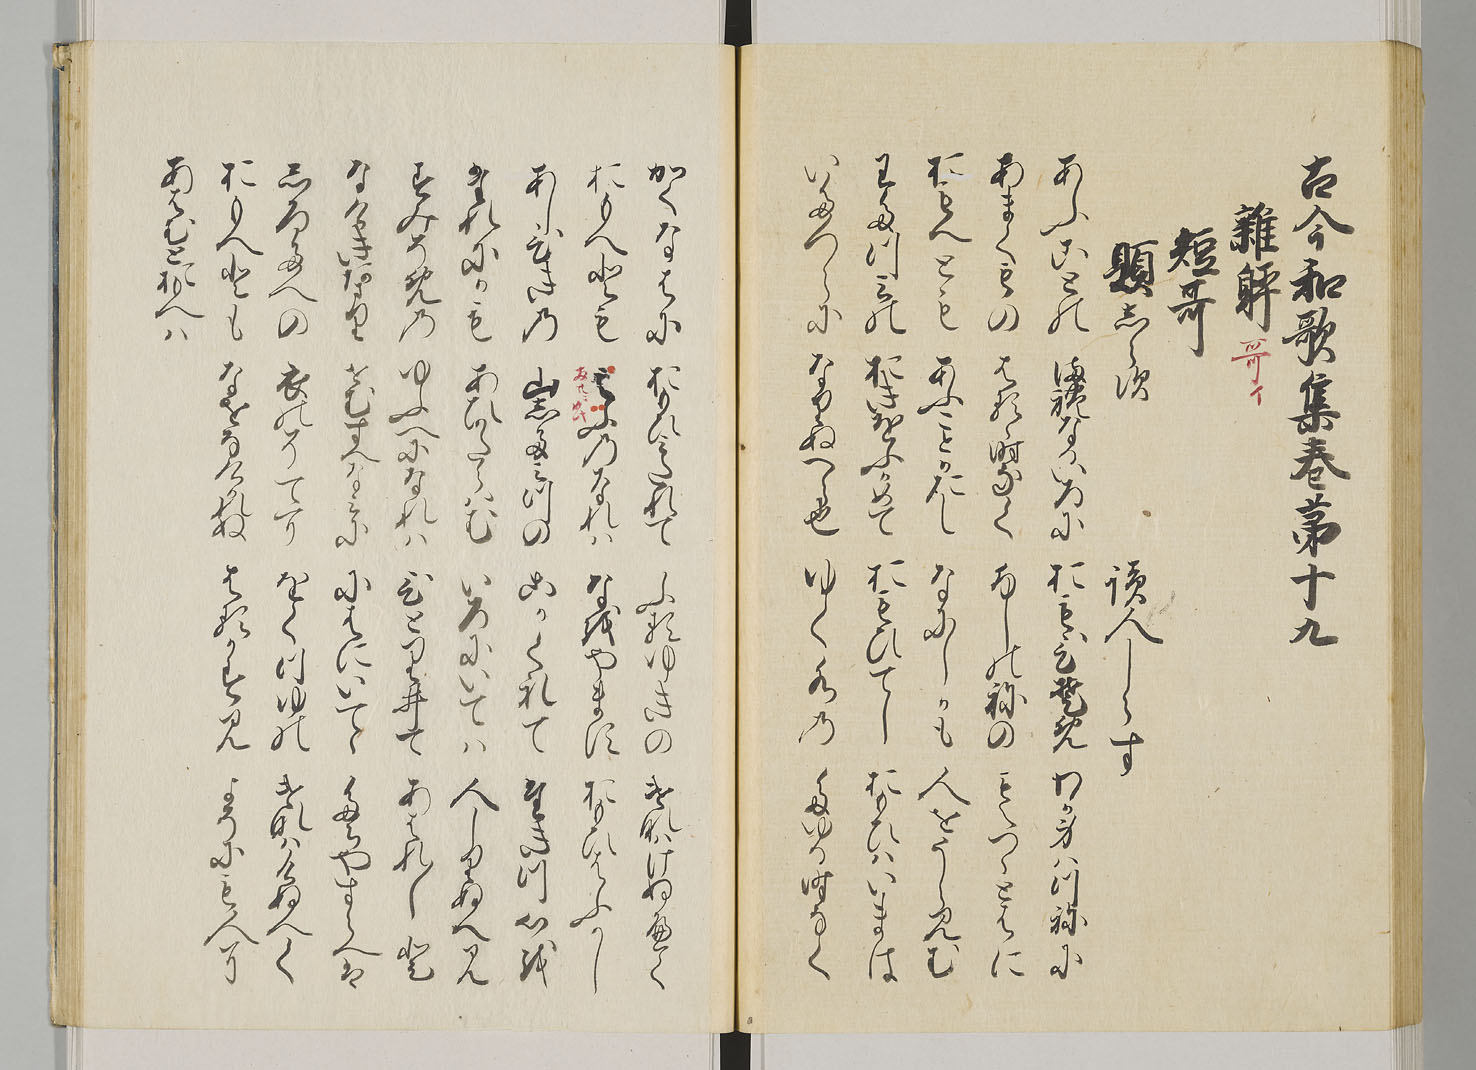 古今和歌集巻第十九
雑躰 哥イ
短哥
題しらす 読人しらす
あふことの まれなるいろに おもひそめ わか身はつねに
あまくもの はるゝ時なく ふしのねの もえつゝとはに
おもへとも あふことかたし なにしかも 人をうらみむ
わたつみの おきをふかめて おもひてし おもひはいまは
いたつらに なりぬへら也 ゆく水の たゆる時なく
かくなはに おもひみたれて ふるゆきの けなはけぬへく
おもへとも えふのなれは なをやます おもひはふかし
あしひきの 山したみつの こかくれて たきつ心を
たれにかも あひかたらはむ いろにいては 人しりぬへみ
すみそめの ゆふへになれは ひとりゐて あはれ〱と
なけきあまり せむすへなみに にはにいてゝ たちやすらへは
しろたへの 衣のそてに をくつゆの けなはけぬへく
おもへとも なをなけかれぬ はるかすみ よそにも人に
あはむとおもへは